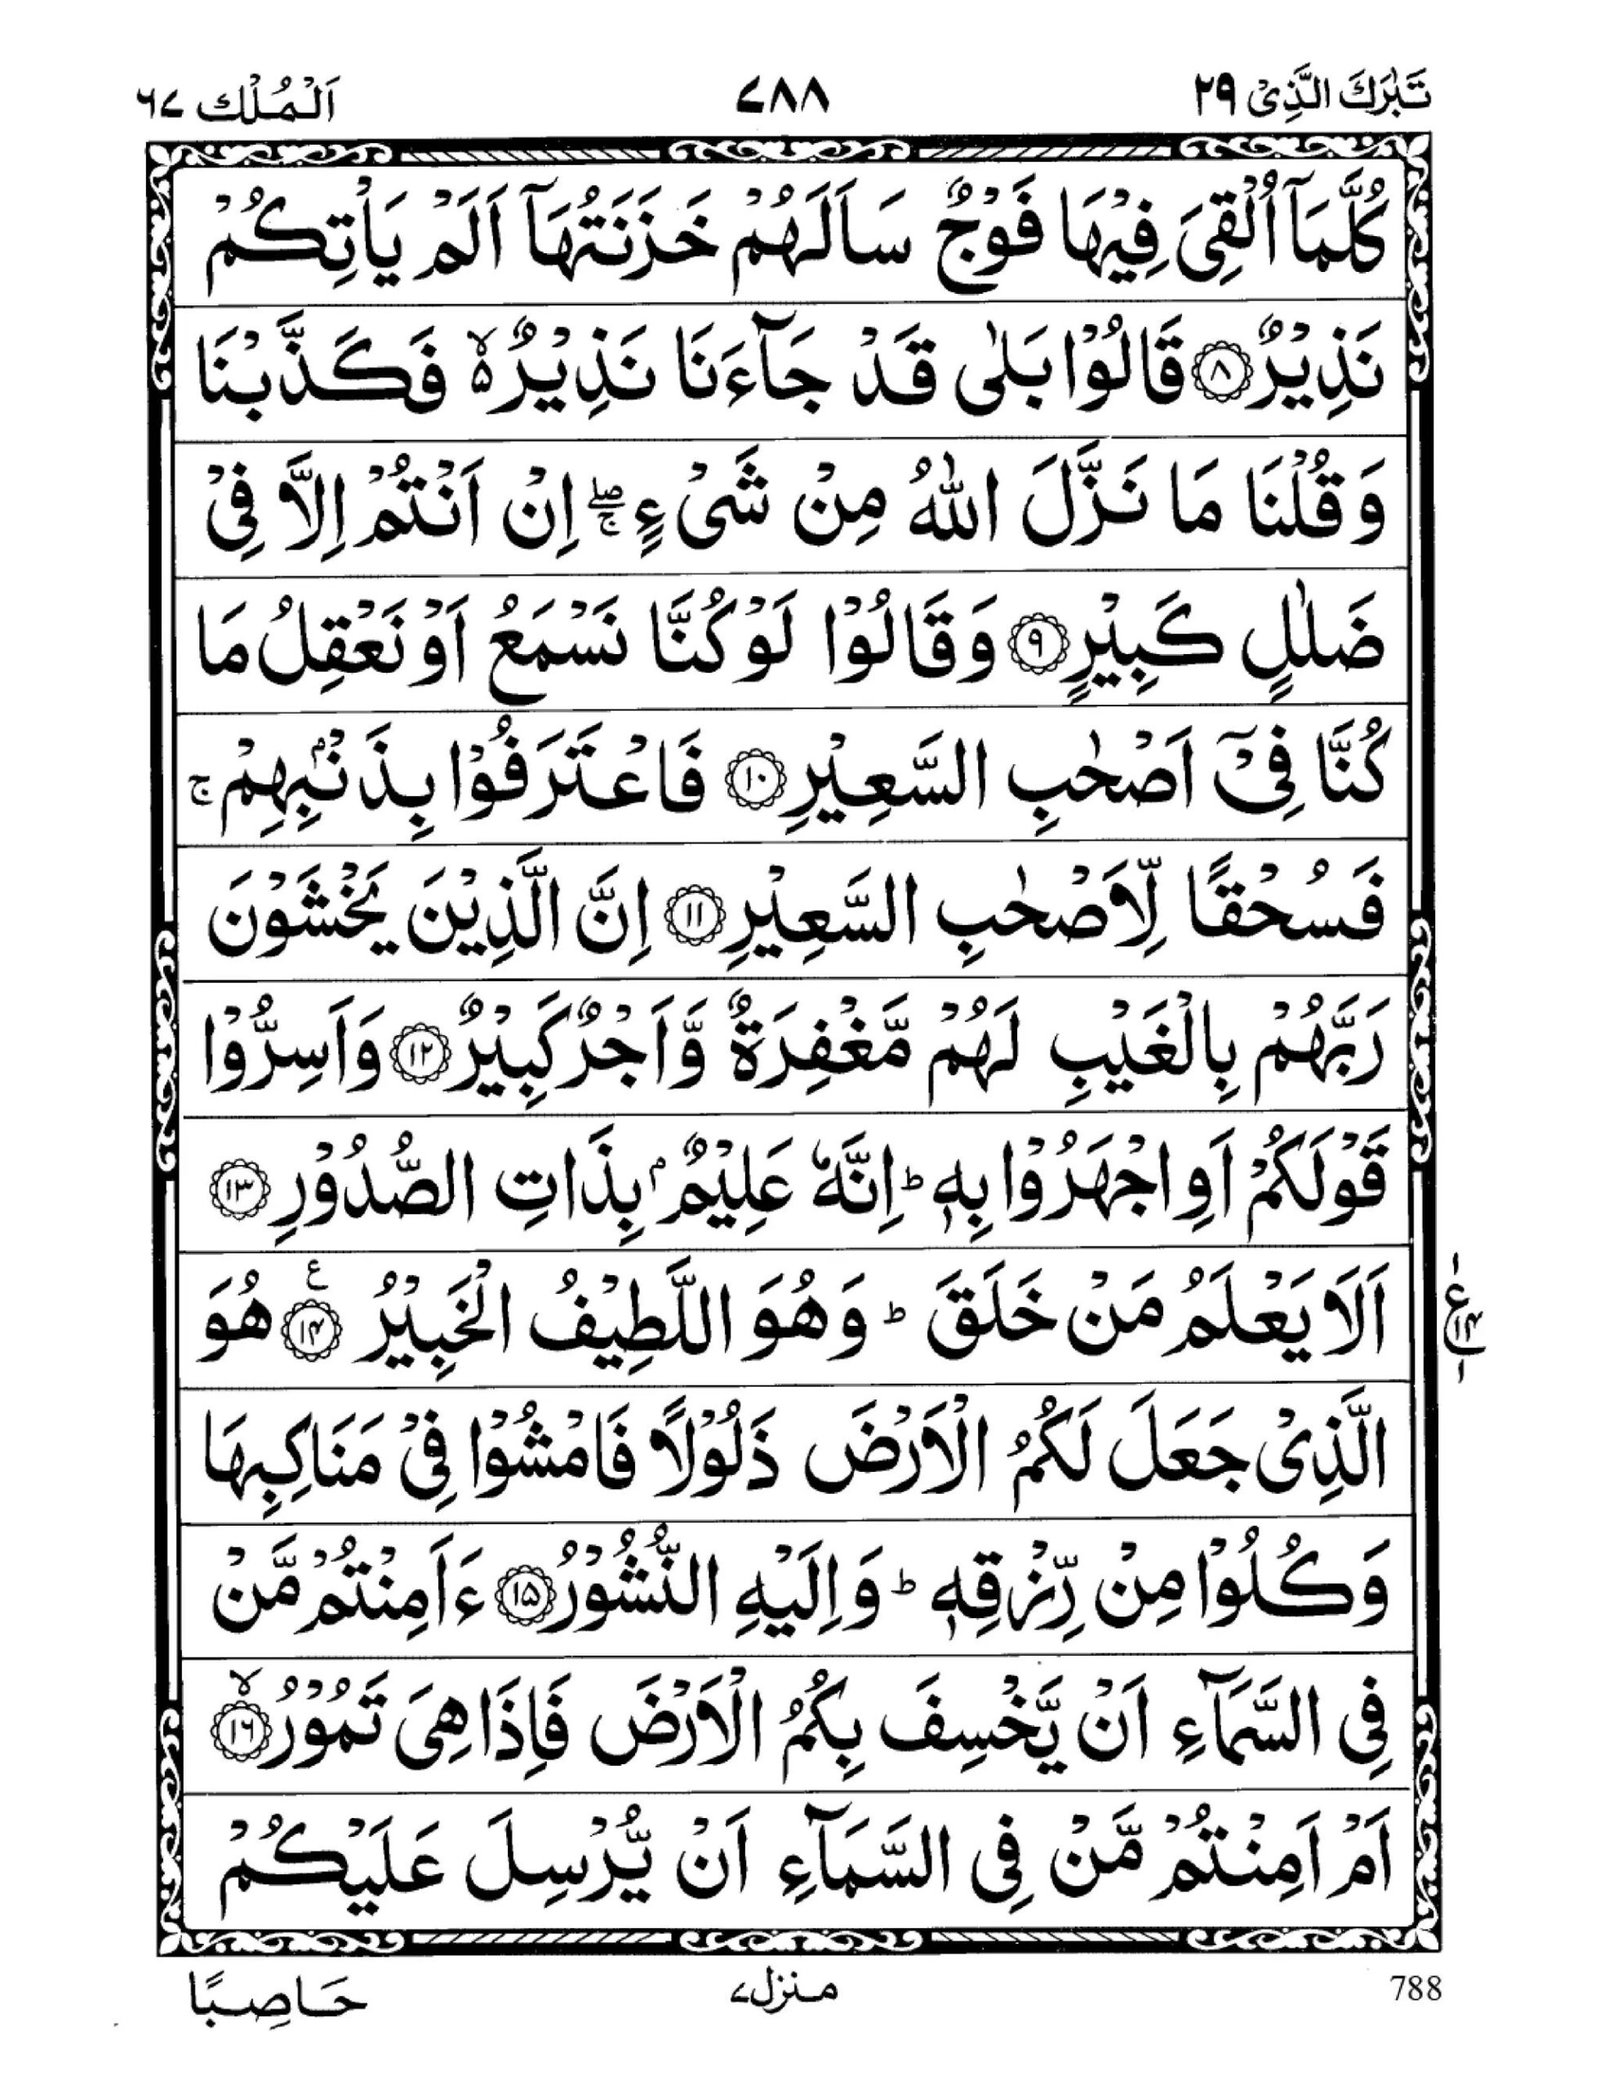 تَبٰرَكَ الَّذِىْ ۲۹
۷۸۸
اَلْمُلْك ۶۷
كُلَّمَآ اُلْقِىَ فِيْهَا فَوْجٌ سَاَلَهُمْ خَزَنَتُهَآ اَلَمْ يَاْتِكُمْ
نَذِيْرٌ ۝۸ قَالُوْا بَلٰى قَدْ جَآءَنَا نَذِيْرٌ ۙ۬ فَكَذَّبْنَا
وَقُلْنَا مَا نَزَّلَ اللّٰهُ مِنْ شَىْءٍ ۖۚ اِنْ اَنْتُمْ اِلَّا فِىْ
ضَلٰلٍ كَبِيْرٍ ۝۹ وَقَالُوْا لَوْ كُنَّا نَسْمَعُ اَوْ نَعْقِلُ مَا
كُنَّا فِىْۤ اَصْحٰبِ السَّعِيْرِ ۝۱۰ فَاعْتَرَفُوْا بِذَنْۢبِهِمْ ۚ
فَسُحْقًا لِّاَصْحٰبِ السَّعِيْرِ ۝۱۱ اِنَّ الَّذِيْنَ يَخْشَوْنَ
رَبَّهُمْ بِالْغَيْبِ لَهُمْ مَّغْفِرَةٌ وَّاَجْرٌ كَبِيْرٌ ۝۱۲ وَاَسِرُّوْا
قَوْلَكُمْ اَوِ اجْهَرُوْا بِهٖ ؕ اِنَّهٗ عَلِيْمٌۢ بِذَاتِ الصُّدُوْرِ ۝۱۳
اَلَا يَعْلَمُ مَنْ خَلَقَ ؕ وَهُوَ اللَّطِيْفُ الْخَبِيْرُ ۝۱۴ ع هُوَ
الَّذِىْ جَعَلَ لَكُمُ الْاَرْضَ ذَلُوْلًا فَامْشُوْا فِىْ مَنَاكِبِهَا
وَكُلُوْا مِنْ رِّزْقِهٖ ؕ وَاِلَيْهِ النُّشُوْرُ ۝۱۵ ءَاَمِنْتُمْ مَّنْ
فِى السَّمَآءِ اَنْ يَّخْسِفَ بِكُمُ الْاَرْضَ فَاِذَا هِىَ تَمُوْرُ ۙ۝۱۶
اَمْ اَمِنْتُمْ مَّنْ فِى السَّمَآءِ اَنْ يُّرْسِلَ عَلَيْكُمْ
۱ ع ۱۴ ۱
788
منزل ۷
حَاصِبًا